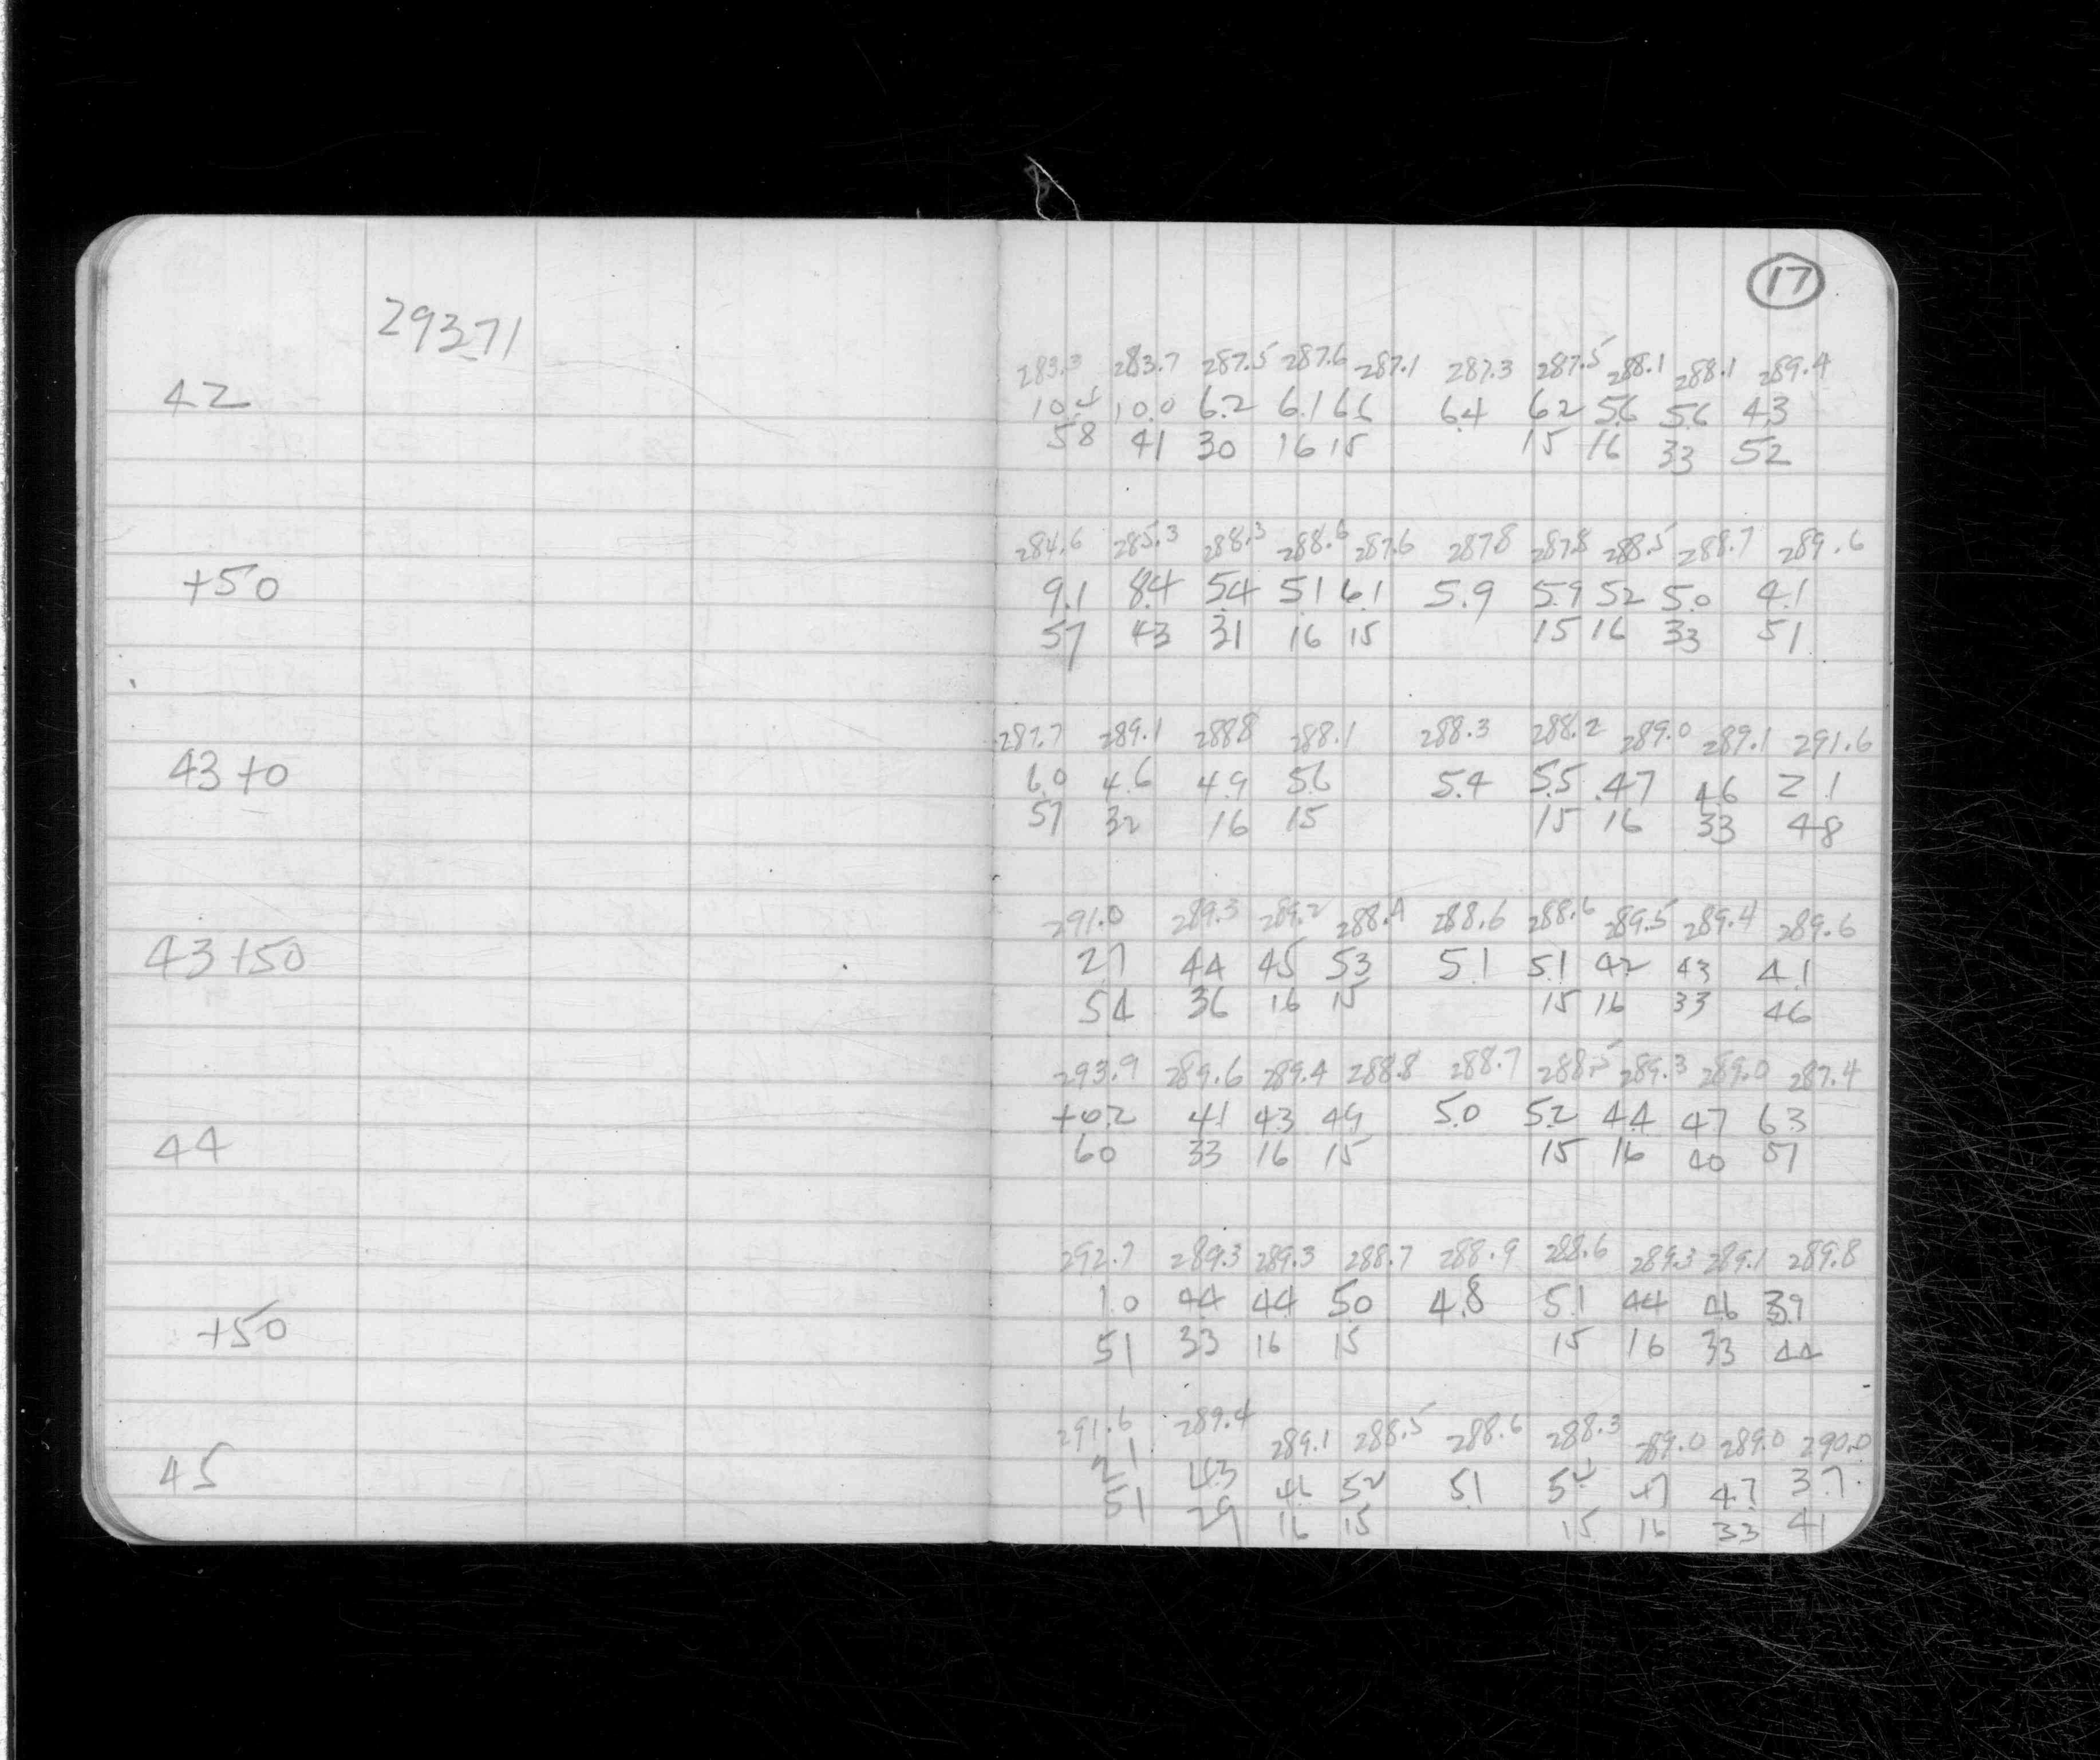 17
293.71
283.3 283.7 287.5 287.6 287.1 287.3 287.5 288.1 288.1 289.4
42 10.4 10.0 6.2 6.1 6.6 6.4 6.2 5.6 5.6 4.3
58 41 30 16 15 15 16 33 52
284.6 285.3 288.3 288.6 287.6 287.8 287.8 288.5 288.7 289.6
+50 9.1 8.4 5.4 5.1 6.1 5.9 5.9 5.2 5.0 4.1
57 43 31 16 15 15 16 33 51
287.7 289.1 288.8 288.1 288.3 288.2 289.0 289.1 291.6
43+0 6.0 4.6 4.9 5.6 5.4 5.5 4.7 4.6 2.1
57 32 16 15 15 16 33 48
291.0 289.3 289.2 288.4 288.6 288.6 289.5 289.4 289.6
43+50 2.7 4.4 4.5 5.3 5.1 5.1 4.2 4.3 4.1
54 36 16 15 15 16 33 46
293.9 289.6 289.4 288.8 288.7 288.5 289.3 289.0 287.4
+0.2 4.1 4.3 4.9 5.0 5.2 4.4 4.7 6.3
44 60 33 16 15 15 16 40 57
292.7 289.3 289.3 288.7 288.9 288.6 289.3 289.1 289.8
+50 1.0 4.4 4.4 5.0 4.8 5.1 4.4 4.6 3.9
51 33 16 15 15 16 33 44
291.6 289.4 289.1 288.5 288.6 288.3 289.0 289.0 290.0
45 2.1 4.3 4.6 5.2 5.1 5.4 4.7 4.7 3.7
51 29 16 15 15 16 33 41